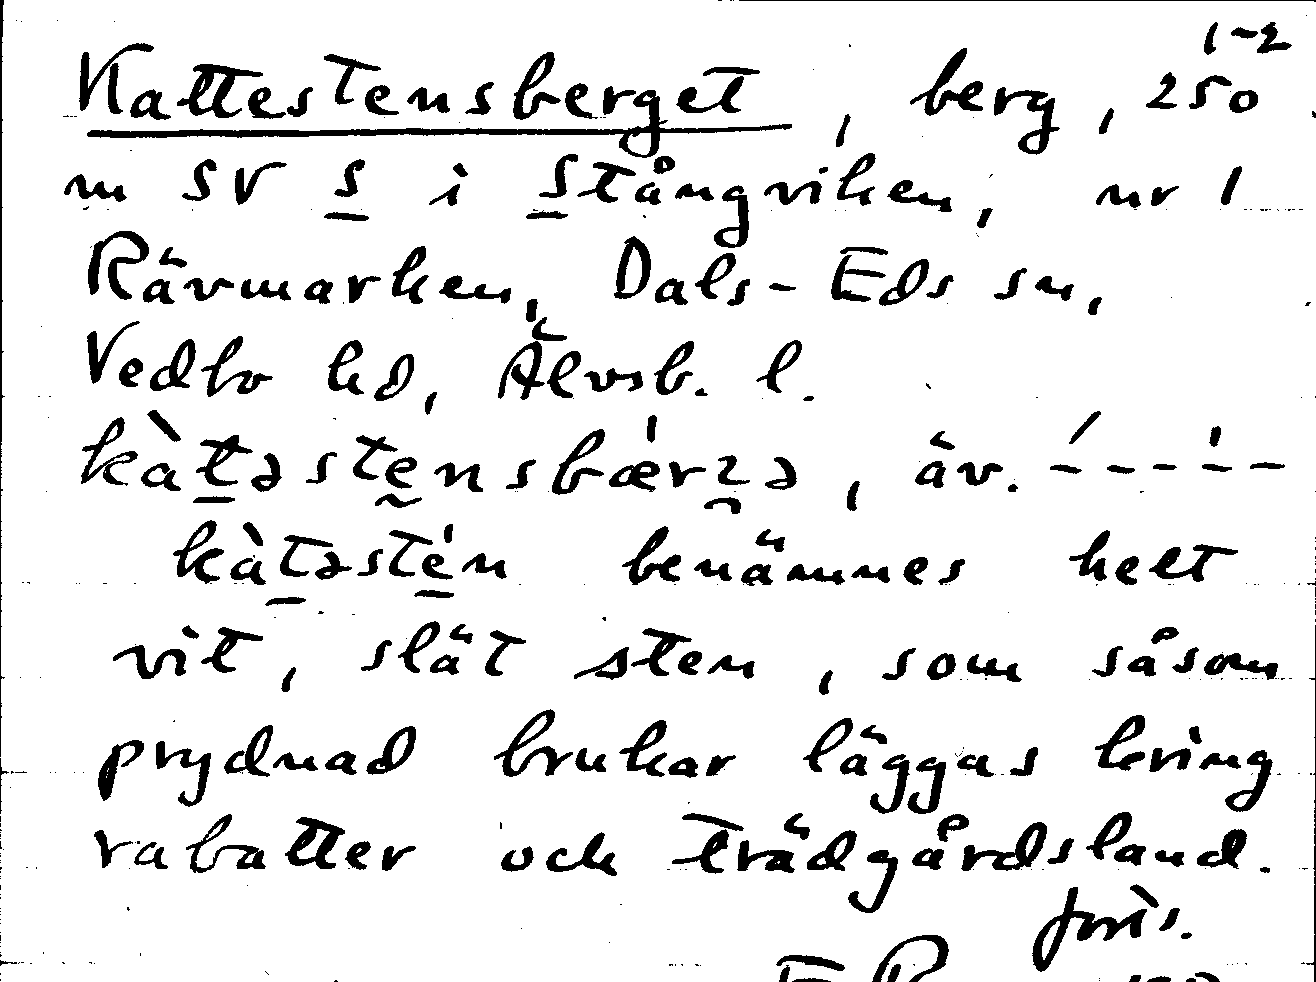 1-2
Kattestensberget, berg, 250
m SV s i Stångviken, nr 1
Rävmarken, Dals-Eds sn,
Vedbo hd, Älvsb. l.
kàtəstensbærʒə, äv. -----
kàtəstén benämnes helt
vit, slät sten, som såsom
prydnad brukar läggas kring
rabatter och trädgårdsland.
forts.